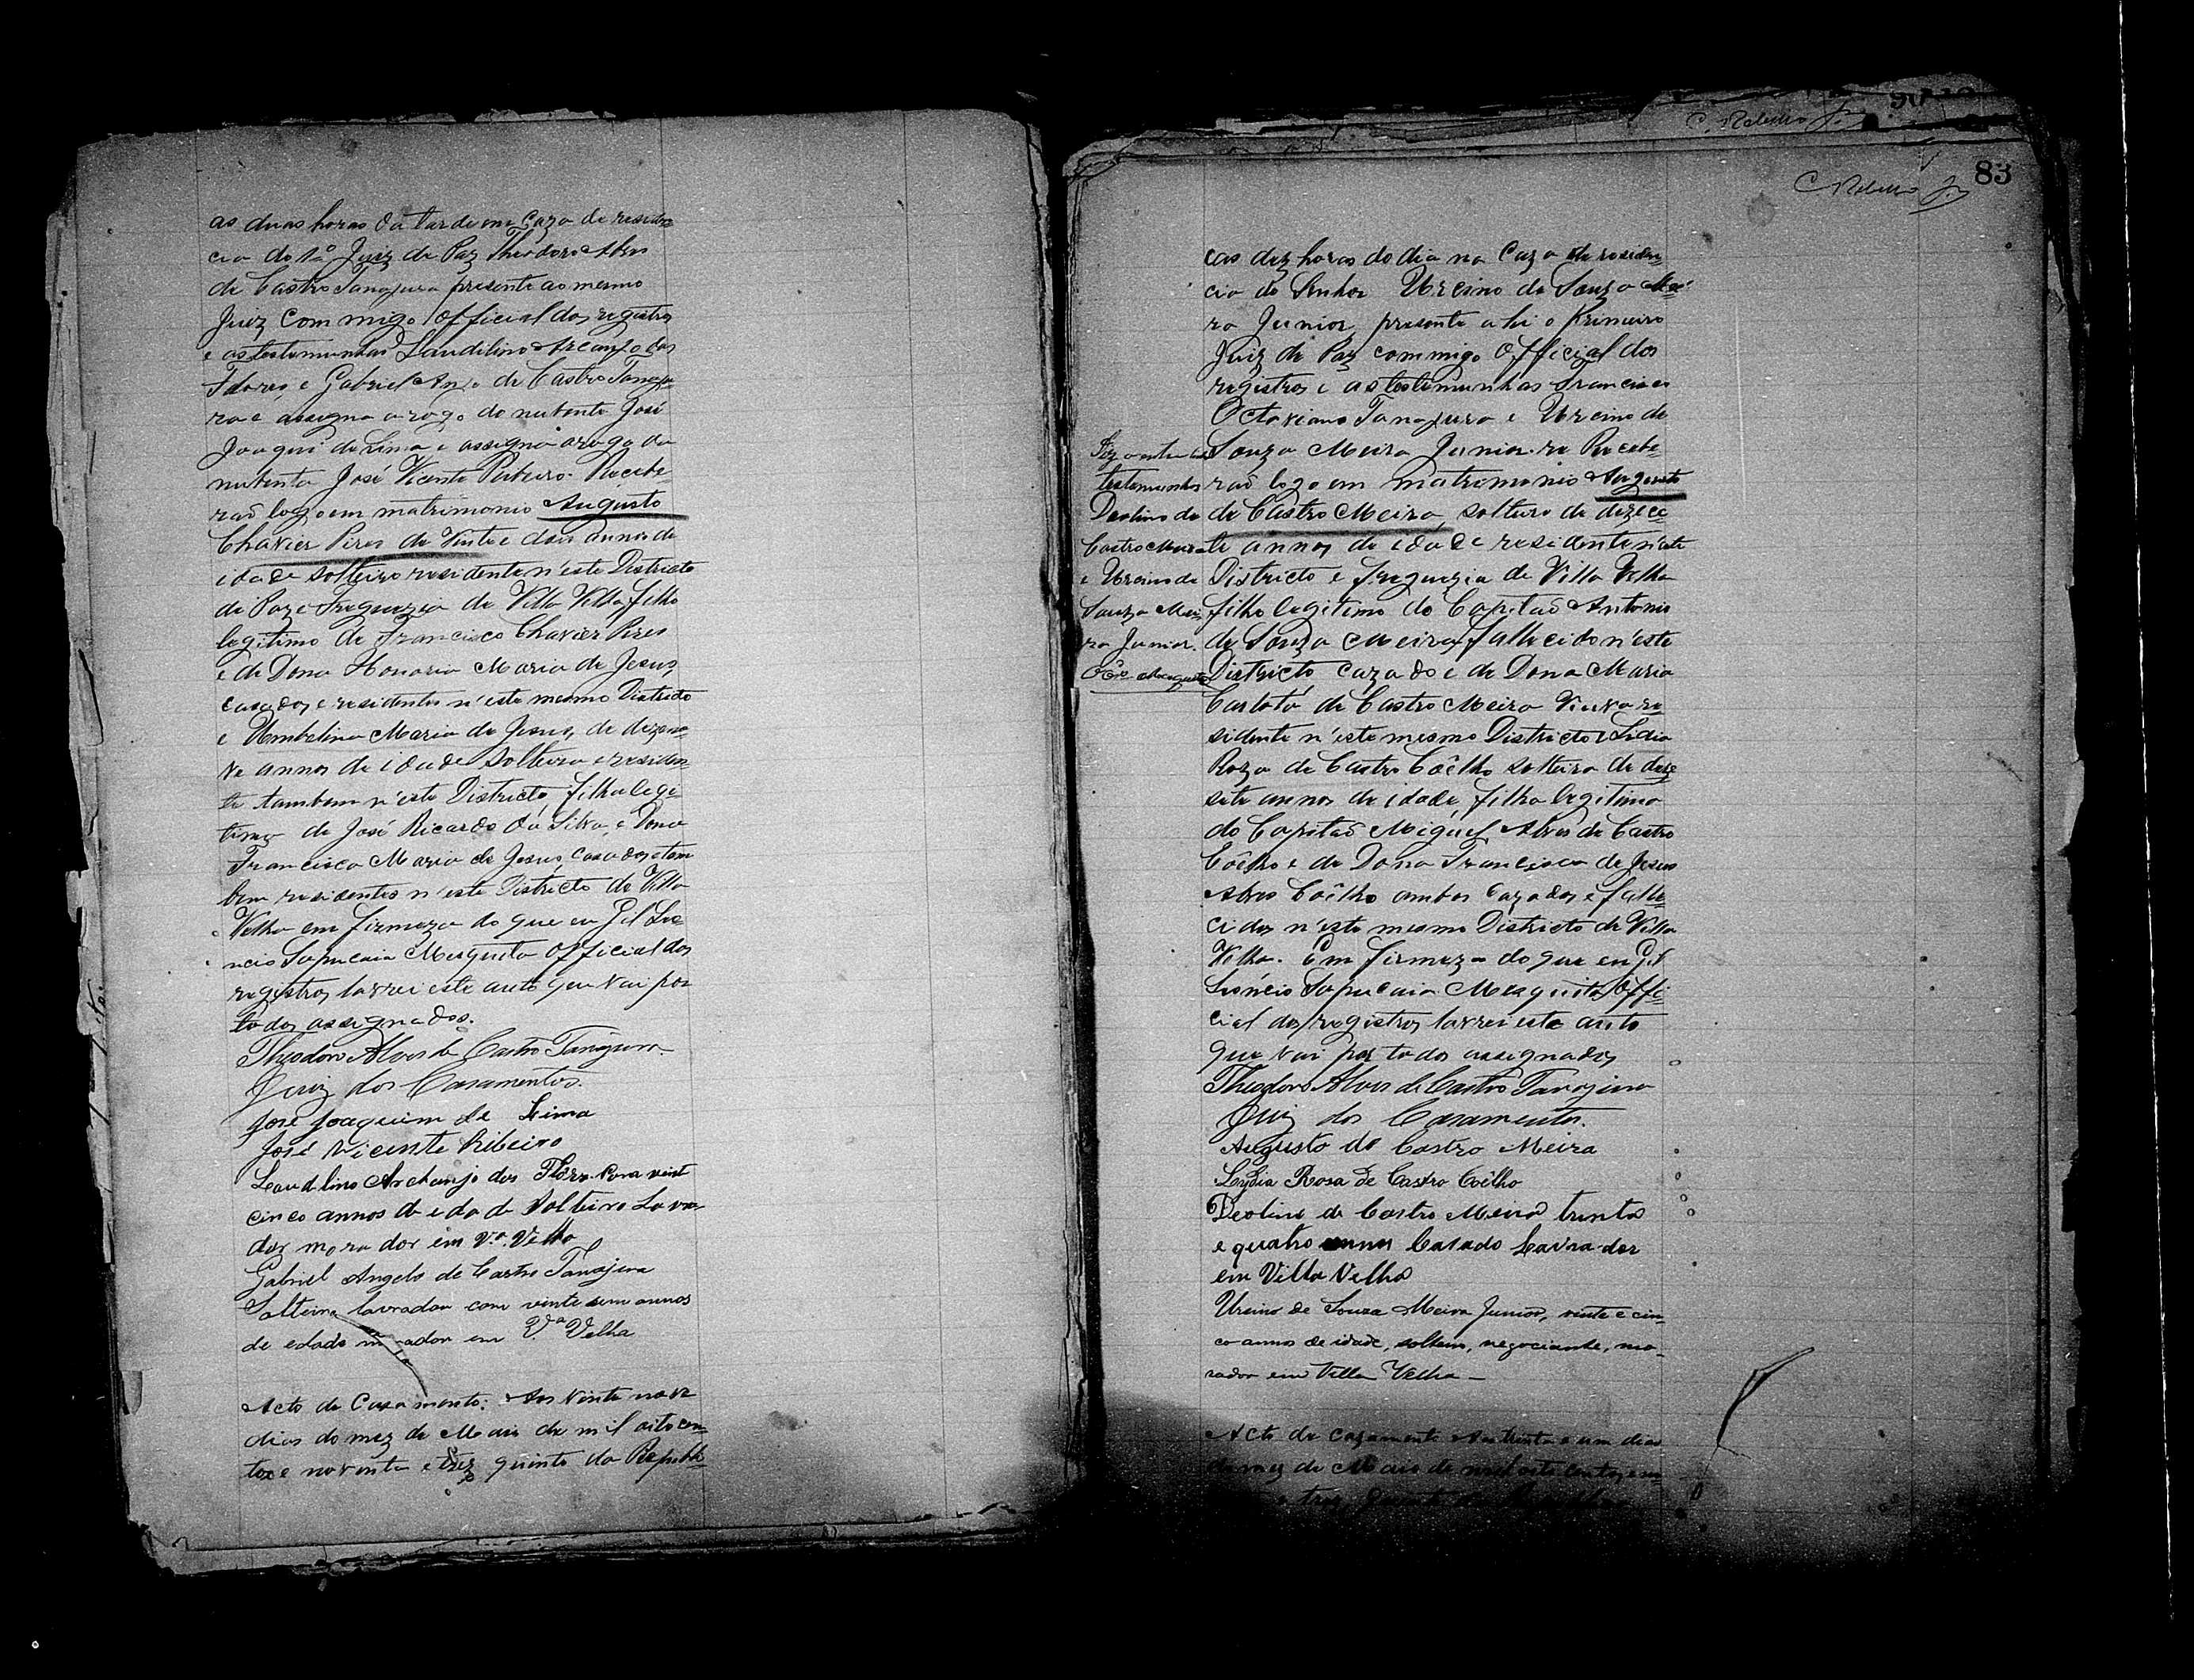 as duas horas da tarde em a Caza de residen-
cia do 1º Juiz de Paz Theodoro Alves
de Castro Tanajura presente ao mesmo
Juiz commigo official dos registros
e as testemunhas Laudilino Arcanjo das
Flores, e Gabriel Anj.o de Castro Tanaju-
ra e assigna a rogo do nubente José
Joaqui de Lima e assigna a rogo da
nubenta José Vicente Ribeiro. Recebe-
raõ logo em matrimonio Augusto
Chavier Pires de Vinte e dois annos de
idade solteiro residente n'este Districto
de Paz e Freguezia de Villa Velha filho
legitimo de Francisco Chavier Pires
e de Dona Honoria Maria de Jesus,
casados e residentes n'este mesmo Districto
e Umbelina Maria de Jesus, de dezeno-
ve annos de idade solteira e residen-
te tambem n'este Districto, filha legi-
tima de José Ricardo da Silva, e Dona
Francisca Maria de Jesus, casados e tam
bem residentes n'este Districto de Villa
Velha em firmeza do que eu Gil Leo-
ncio Sapucaia Mesquita Official dos
registros, lavrei este auto que vai por
todos assignados.
Theodoro Alves de Castro Tanajura
Juiz dos Casamentos.
José Joaquim de Lima
José Vicente Ribeiro
Laudlino Archanjo das Flôres vint
cinco annos de edade Solteiro Lavra
dor morador em Vª. Velha
Gabriel Angelo de Castro Tanajura
Solteiro lavrador com vinte annos
de edade morador em Vª Velha
Acto de Casamento: Aos vinte nove
dias do mez de Maio de mil oitocen-
tos e noventa e trez quinto da Republi-
83
C Rebello Jor
cas dez horas do dia na Caza de residen-
cia do Senhor Urcino de Souza Mei-
ra Junior, presente ahi o Primeiro
Juiz de Paz commigo Official dos
registros e as testemunhas Francisco
Octaviano Tanajura e Urcino de
Souza Meira Junior. re Recebe-
raõ logo em matrimonio Augusto
de Castro Meira, solteiro de dezece-
te annos de idade residente n'este
Districto e freguezia de Villa Velha
filho legitimo do Capitaõ Antonio
de Souza Meira, fallecido n'este
Districto cazado e de Dona Maria
Carlota de Castro Meira Viuva re-
sidente n'este mesmo Districto e Lidia
Roza de Castro Coêlho solteira de deze
sete annos de idade, filha legitima
do Capitaõ Miguel Alves de Castro
Coêlho e de Dona Francisca de Jesus
Alves Coêlho ambos cazados e falle-
cidos n'este mesmo Districto de Villa
Velha. Em firmeza do que eu Gil
Leoncio Sapucaia Mesquita Offi-
cial dos registros lavrei este auto
que vai por todos assignados,
Theodoro Alves de Castro Tanajura
Juiz dos Casamentos.
Augusto de Castro Meira
Lydia Rosa de Castro Coêlho
Deolino de Castro Meira trinta
e quatro annos Casado Lavrador
em Villa Velha
Urcino de Souza Meira Junior, vinte e cin-
co annos de idade, solteiro, negociante, mo-
rador em Villa Velha —
testemunhas
Deolino de
Castro Meira
e Urcino de
Souza Mei-
ra Junior.
Acto de cazamento Aos trinta e um dias
do mez de Maio de mil oito centos e no-
e trez quinto da